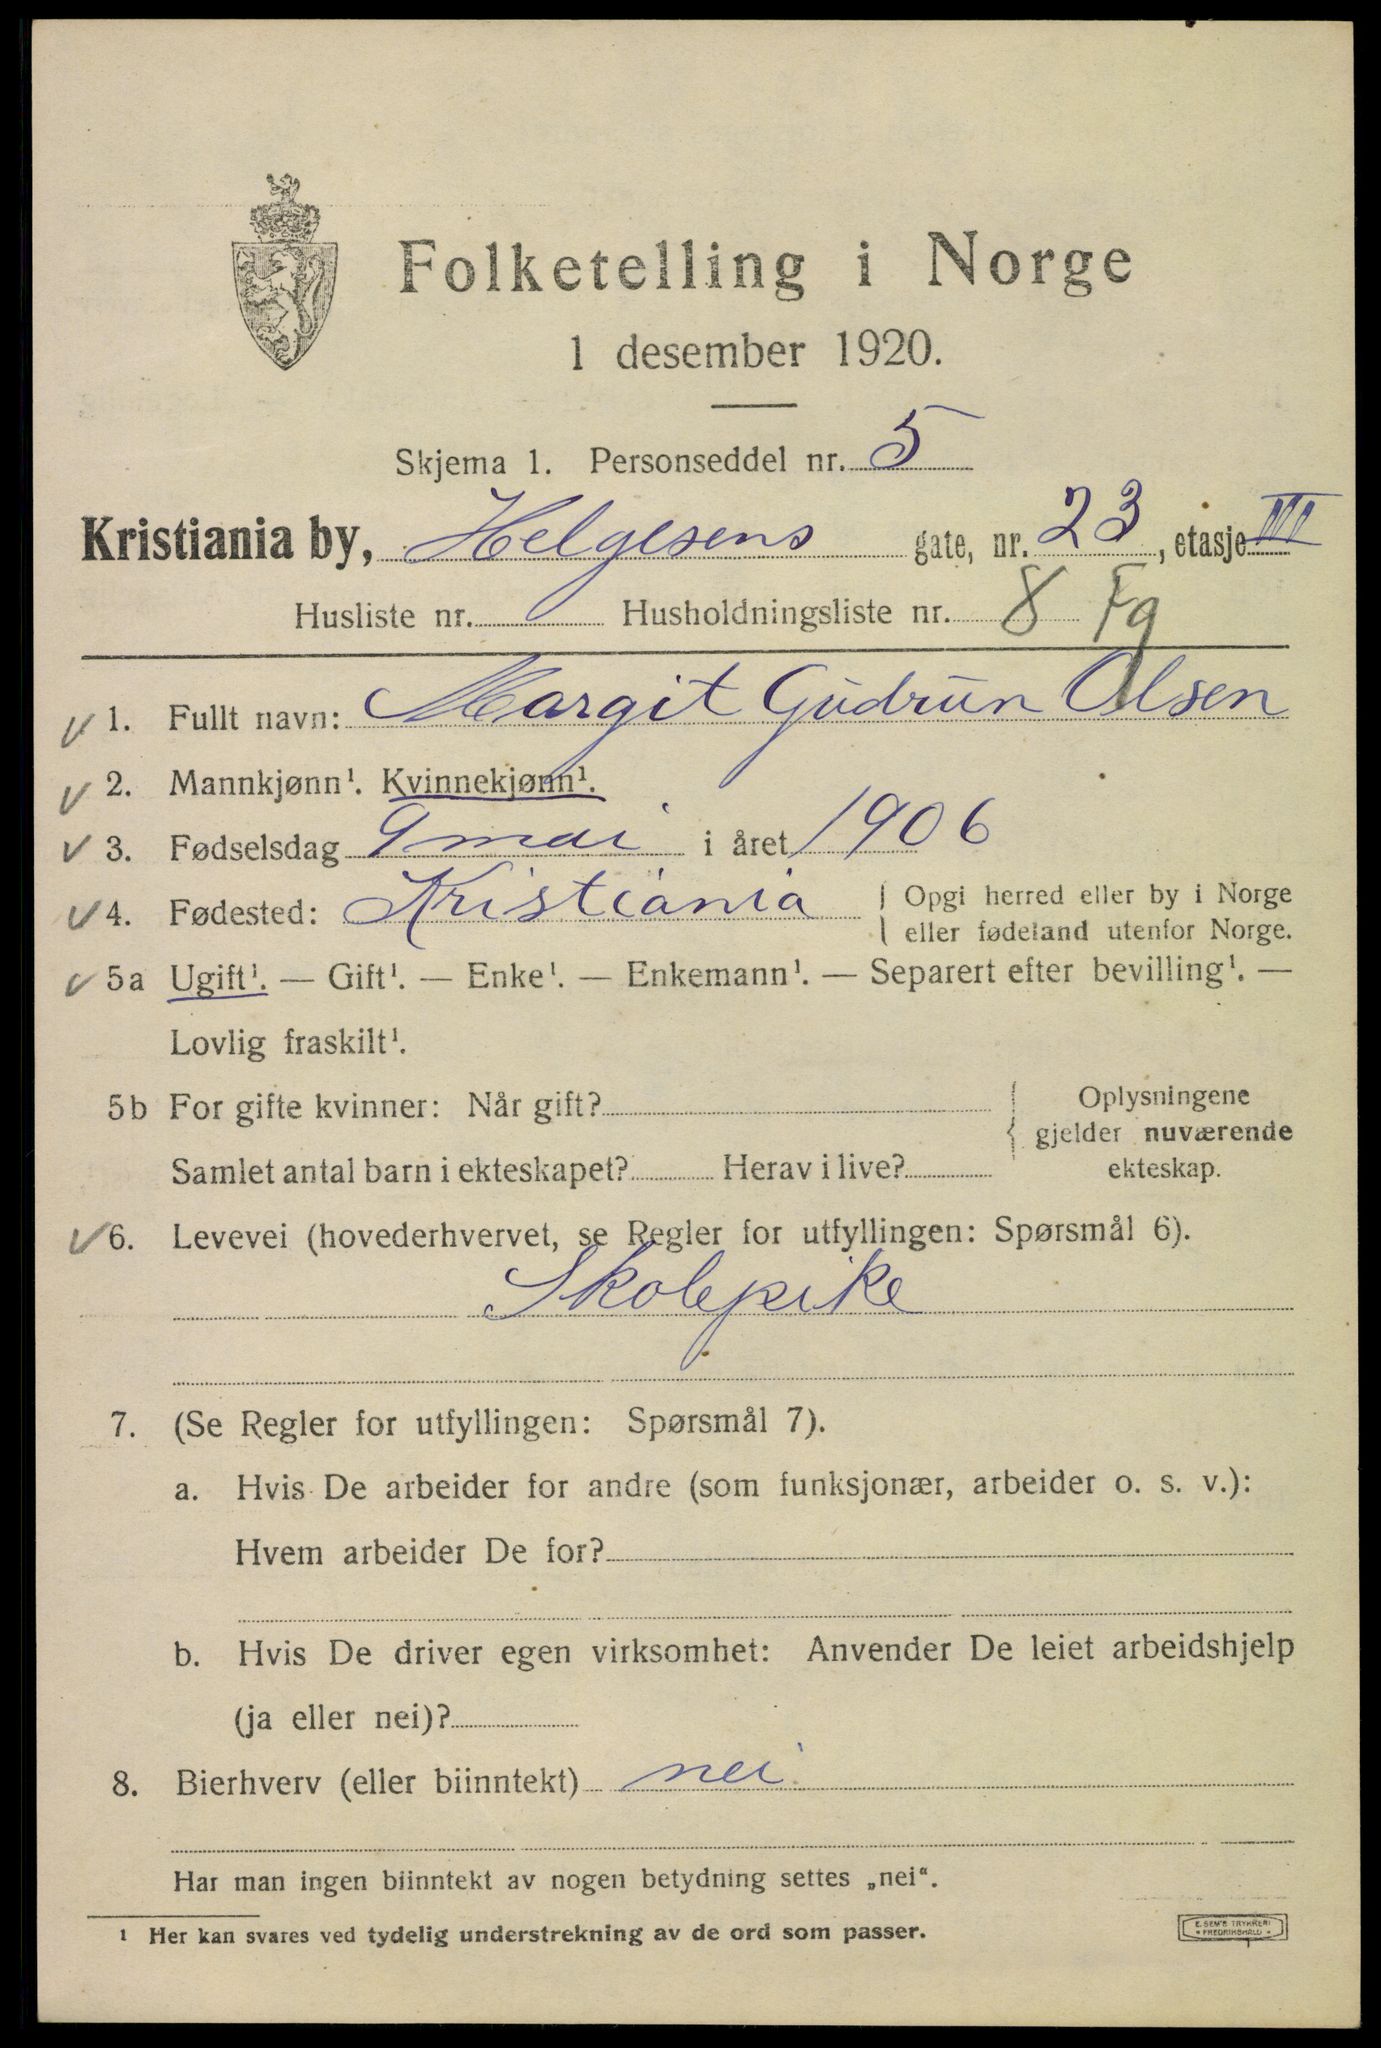 Folketelling i Norge
1 desember 1920.
Skjema 1. Personseddel nr. 5
Kristiania by, Helgesens gate, nr. 23, etasje III
Husliste nr. Husholdningsliste nr. 8 Fg
✓ 1. Fullt navn: Margit Gudrun Olsen
✓ 2. Mannkjønn¹. Kvinnekjønn¹.
✓ 3. Fødselsdag 9 mai i året 1906
✓ 4. Fødested: Kristiania { Opgi herred eller by i Norge
eller fødeland utenfor Norge.
✓ 5a Ugift¹. — Gift¹. — Enke¹. — Enkemann¹. — Separert efter bevilling¹. —
Lovlig fraskilt¹.
5b For gifte kvinner: Når gift? { Oplysningene
gjelder nuværende
Samlet antal barn i ekteskapet? Herav i live? ekteskap.
✓ 6. Levevei (hovederhvervet, se Regler for utfyllingen: Spørsmål 6).
Skolepike
7. (Se Regler for utfyllingen: Spørsmål 7).
a. Hvis De arbeider for andre (som funksjonær, arbeider o. s. v.):
Hvem arbeider De for?
b. Hvis De driver egen virksomhet: Anvender De leiet arbeidshjelp
(ja eller nei)?
8. Bierhverv (eller biinntekt) nei
Har man ingen biinntekt av nogen betydning settes „nei“.
¹ Her kan svares ved tydelig understrekning av de ord som passer.
E. SEM'S TRYKKERI
• FREDRIKSHALD •